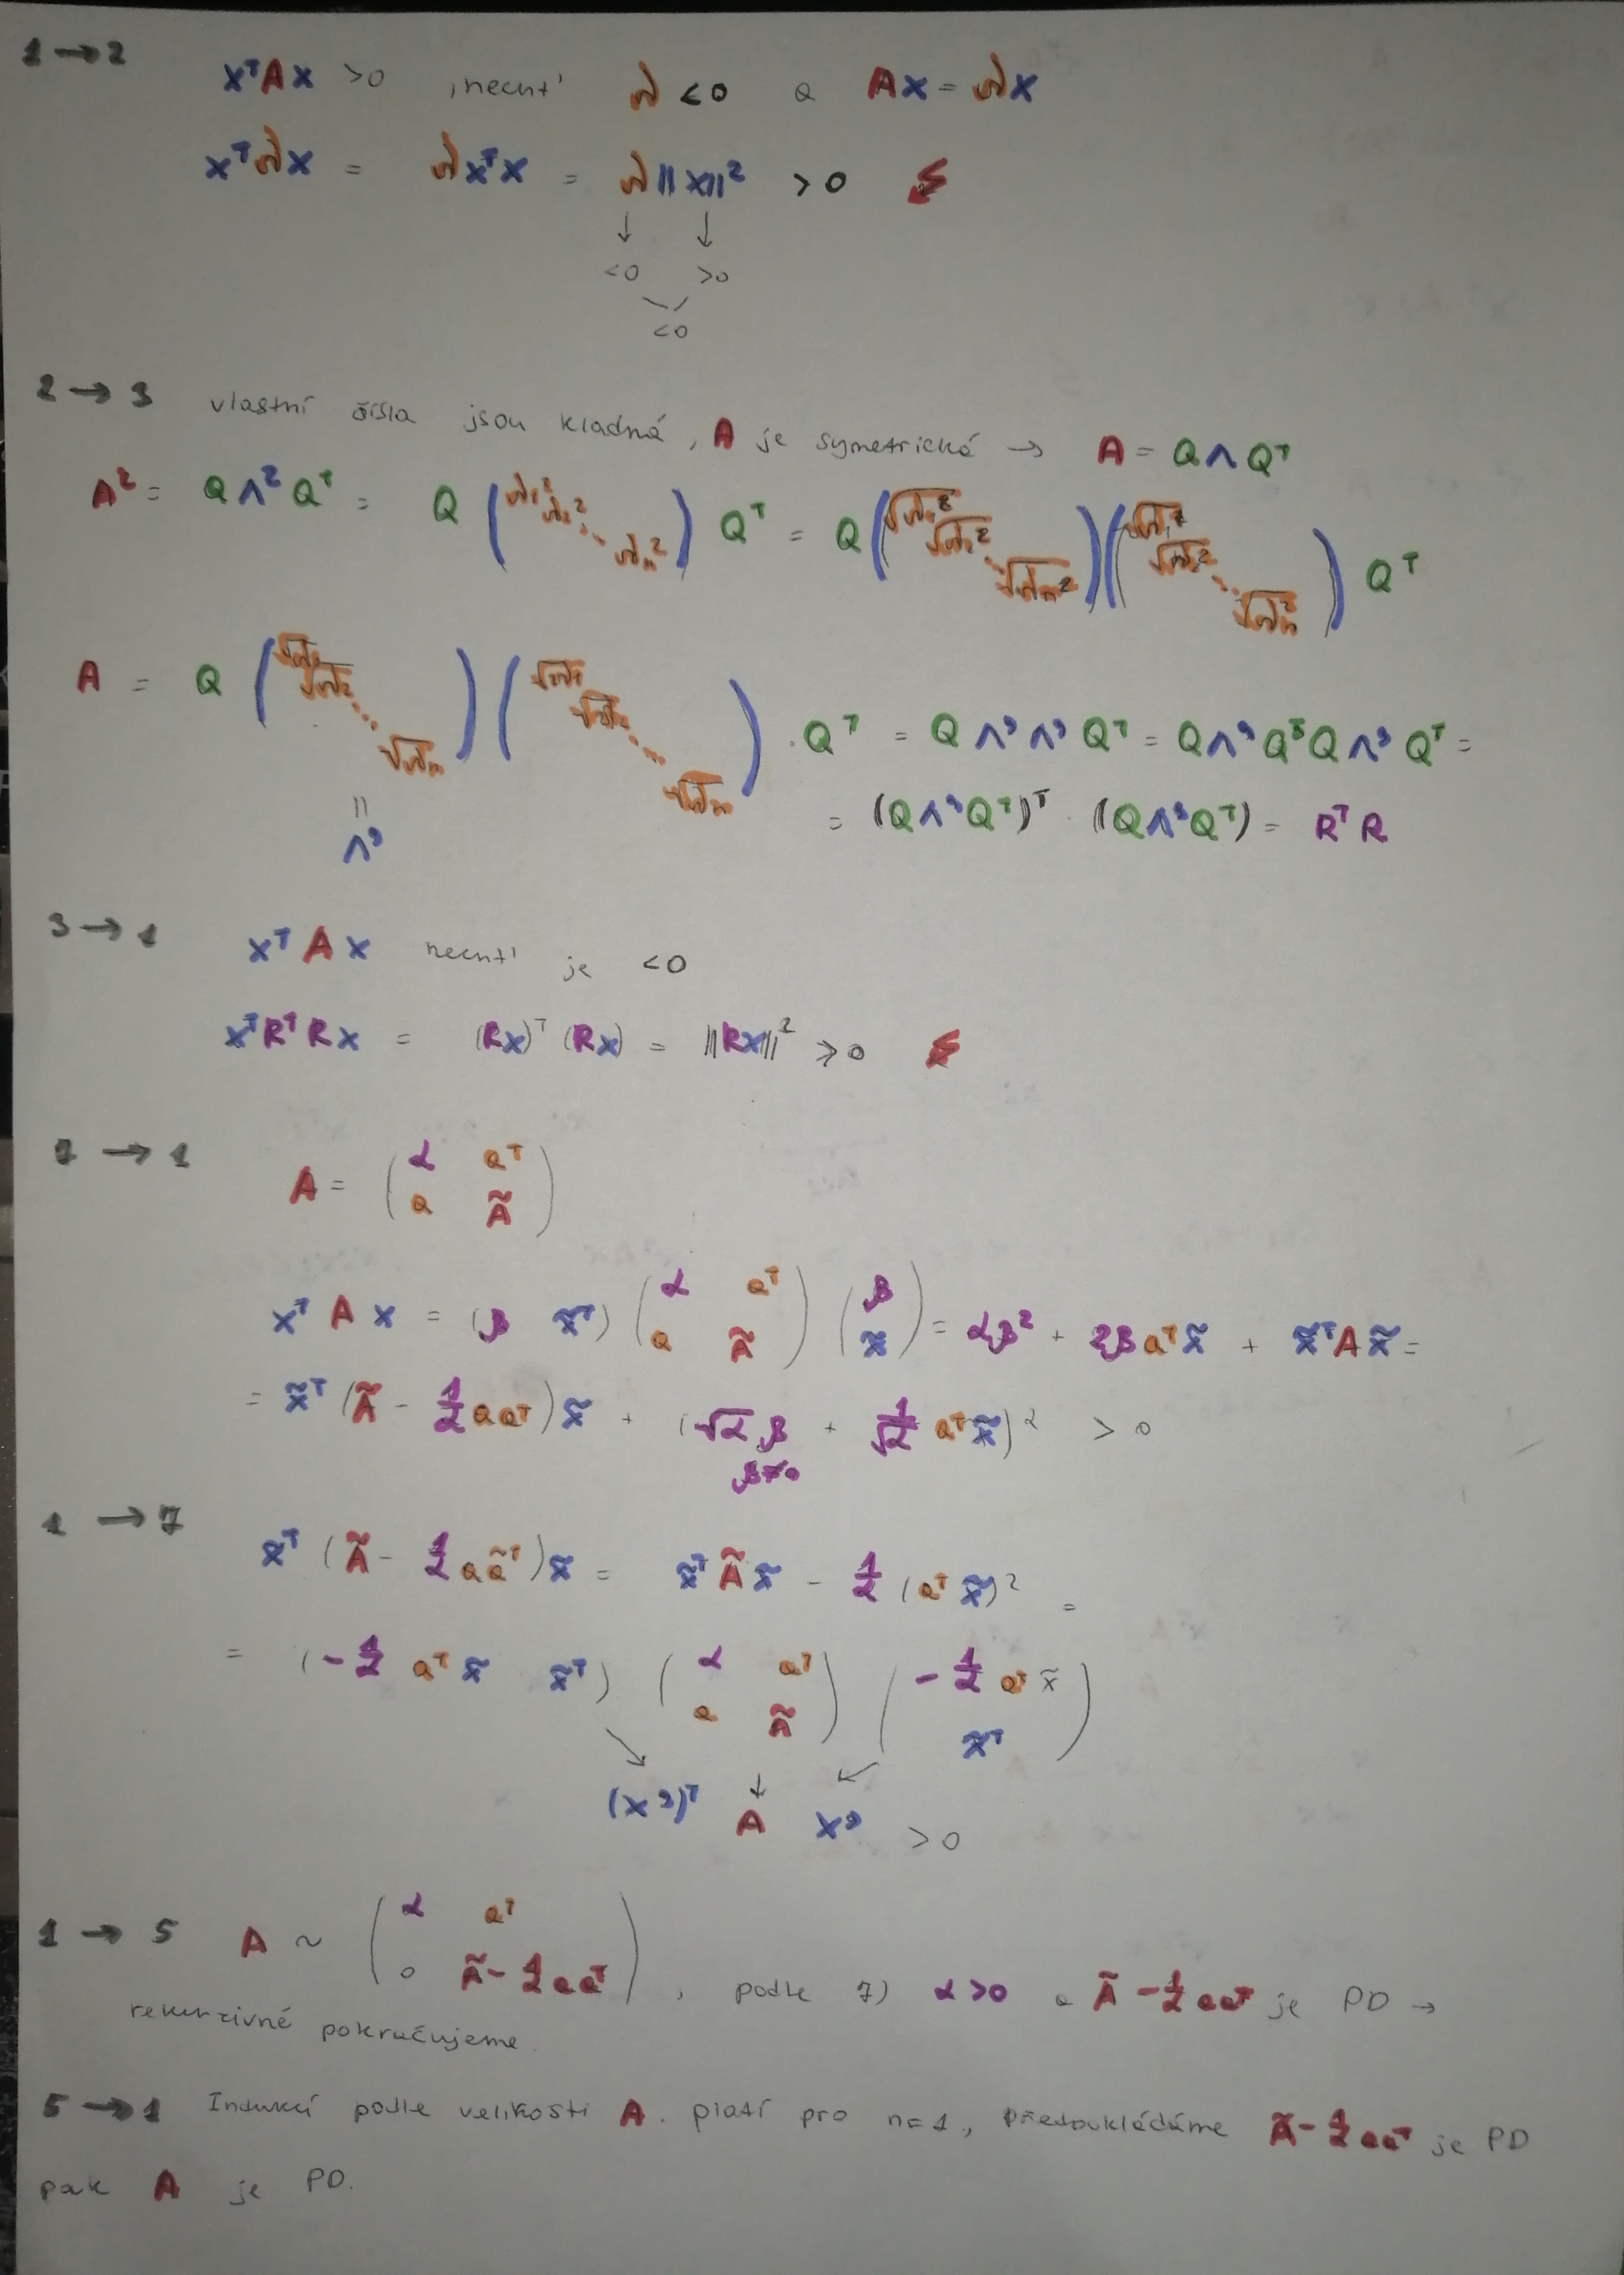 1 → 2
xᵀAx > 0 , nechť λ < 0 a Ax = λx
xᵀλx = λxᵀx = λ||x||² > 0 ↯
↓ ↓
<0 >0
<0
2 → 3 vlastní čísla jsou kladná, A je symetrická → A = QΛQᵀ
A² = QΛ²Qᵀ = Q (λ₁² λ₂² ⋱ λₙ²) Qᵀ = Q (√λ₁² √λ₂² ⋱ √λₙ²)(√λ₁² √λ₂² ⋱ √λₙ²) Qᵀ
A = Q (√λ₁ √λ₂ ⋱ √λₙ)(√λ₁ √λ₂ ⋱ √λₙ) · Qᵀ = QΛ'Λ'Qᵀ = QΛ'QᵀQΛ'Qᵀ =
= (QΛ'Qᵀ)ᵀ · (QΛ'Qᵀ) = RᵀR
||
Λ'
3 → 1 xᵀAx nechť je <0
xᵀRᵀRx = (Rx)ᵀ(Rx) = ||Rx||² ≥ 0 ↯
7 → 1 A = (α aᵀ
a Ã)
xᵀAx = (β x̃ᵀ) (α aᵀ a Ã) (β x̃) = αβ² + 2βaᵀx̃ + x̃ᵀAx̃ =
= x̃ᵀ(Ã - 1/α aaᵀ)x̃ + (√α β + 1/√α aᵀx̃)² > 0
β≠0
1 → 7
x̃ᵀ(Ã - 1/α aãᵀ)x̃ = x̃ᵀÃx̃ - 1/α (aᵀx̃)² =
= (-1/α aᵀx̃ x̃ᵀ) (α aᵀ a Ã) (-1/α aᵀx̃ x̃ᵀ)
↘ ↓ ↙
(x')ᵀ A x' > 0
1 → 5 A ~ (α aᵀ
0 Ã - 1/α aaᵀ) , podle 7) α > 0 a Ã - 1/α aaᵀ je PD →
rekurzivně pokračujeme.
5 → 1 Indukcí podle velikosti A. platí pro n = 1, předpokládáme Ã - 1/α aaᵀ je PD
pak A je PD.